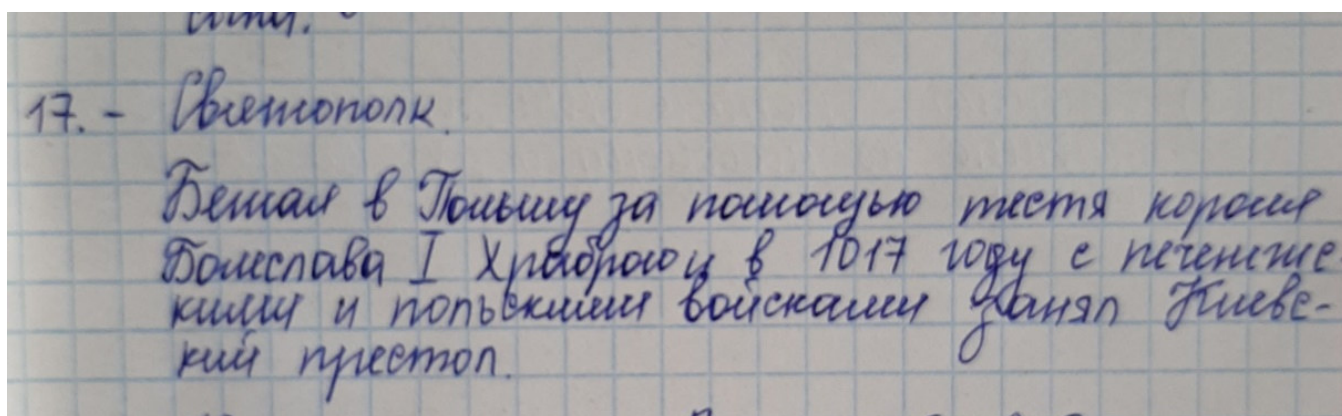 17. - Святополк.
Бежал в Польшу за помощью тестя короля
Болеслава I Храброго и в 1017 году с печенежс-
кими и польскими войсками занял Киевс-
кий престол.